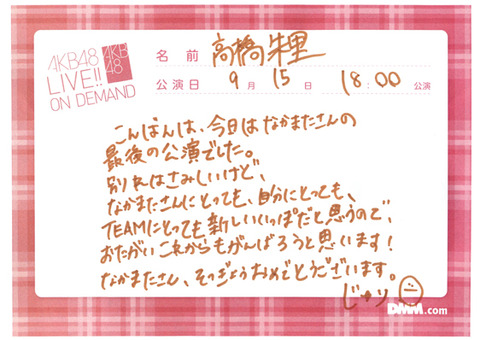 AKB48
LIVE!!
ON DEMAND
AKB
48
名前 高橋朱里
公演日 9月15日 18:00 公演
こんばんは、今日はなかまたさんの
最後の公演でした。
別れはさみしいけど、
なかまたさんにとっても、自分にとっても、
TEAMにとっても新しいいっぽだと思うので、
おたがいこれからもがんばろうと思います!
なかまたさん、そつぎょうおめでとうございます。
じゅり
DMM.com